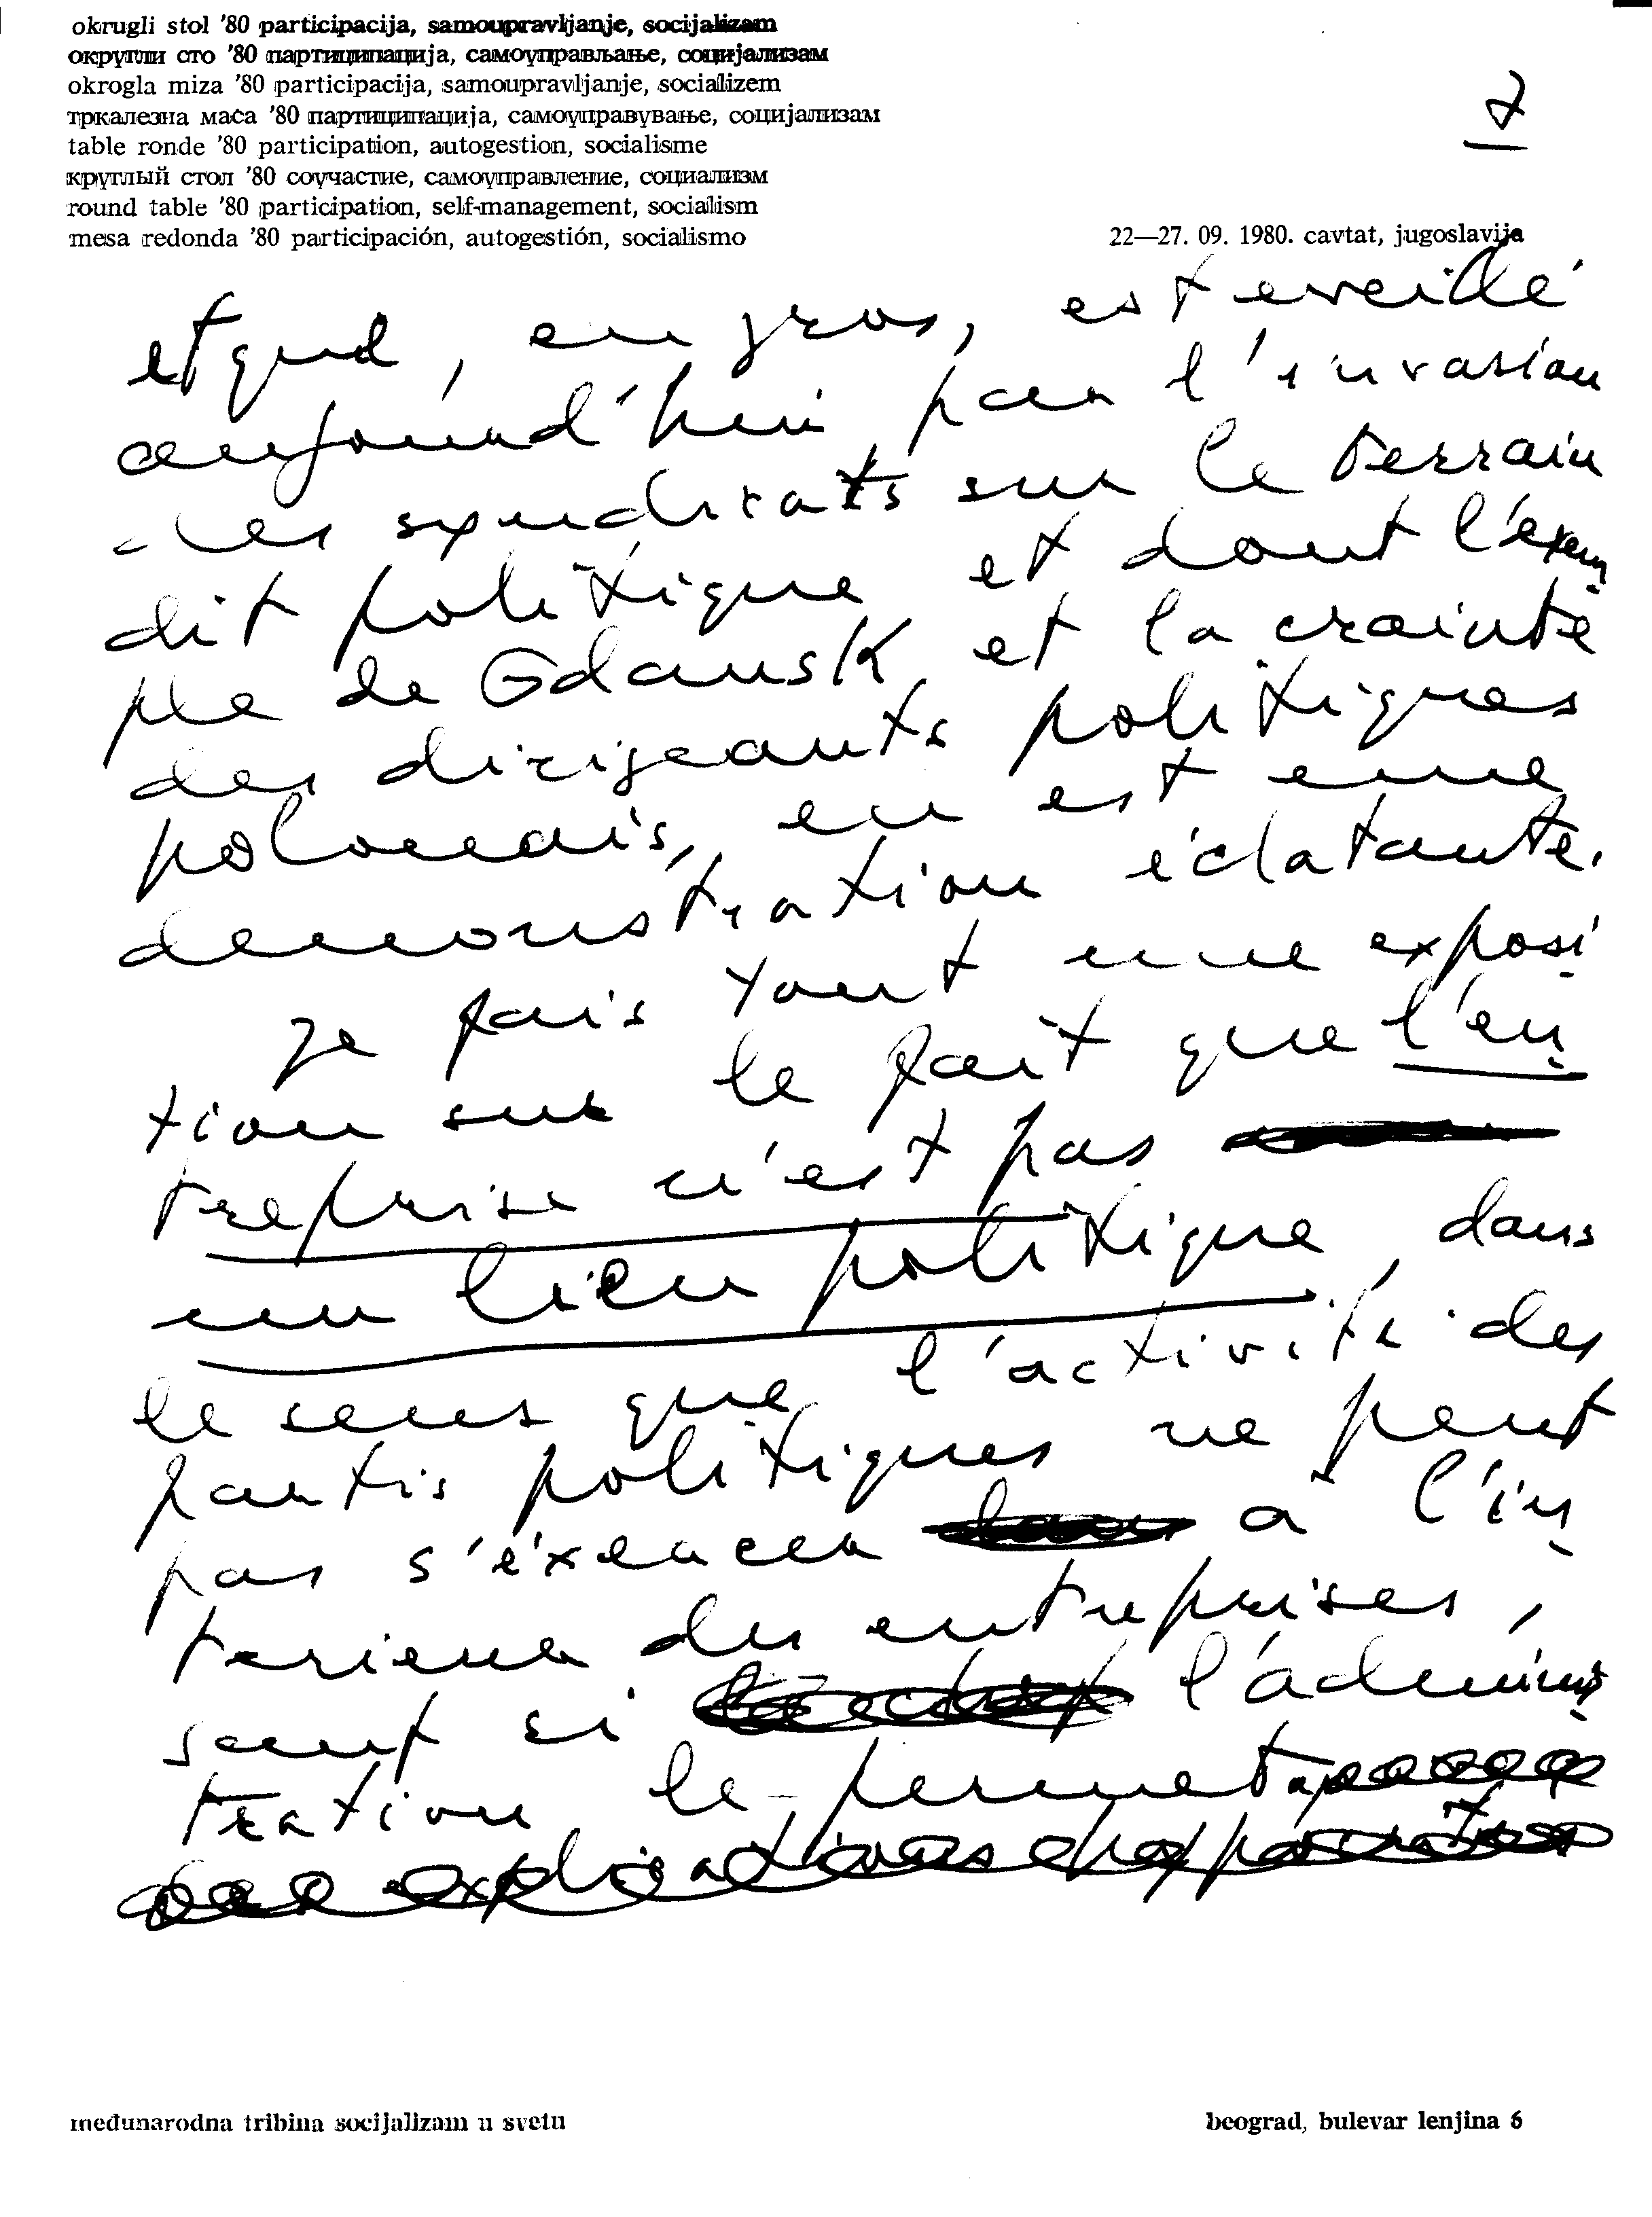 okrugli stol '80 participacija, samoupravljanje, socijalizam
округли сто '80 партиципација, самоуправљање, социјализам
okrogla miza '80 participacija, samoupravljanje, socializem
тркалезна маса '80 партиципација, самоуправување, социјализам
table ronde '80 participation, autogestion, socialisme
круглый стол '80 соучастие, самоуправление, социализм
round table '80 participation, self-management, socialism
mesa redonda '80 participación, autogestión, socialismo
7
22—27. 09. 1980. cavtat, jugoslavija
et qui, en gros, est eveillé
aujourd'hui par l'invasion
des syndicats sur le terrain
dit politique et dont l'exem
ple de Gdansk et la crainte
des dirigeants politiques
polonais, en est une
demonstration éclatante.
Je fais tout une exposi
tion sur le fait que l'en
treprise n'est pas
un lieu politique, dans
le sens que l'activité des
partis politiques ne peut
pas s'éxercer a l'in
terieur des entreprises,
sauf si l'adminis
tration le permet
međunarodna tribina socijalizam u svetu
beograd, bulevar lenjina 6